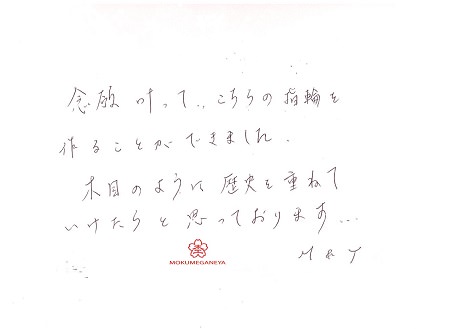 念願叶って、こちらの指輪を
作ることができました。
木目のように歴史を重ねて
いけたらと思っております...
MOKUMEGANEYA
M & Y